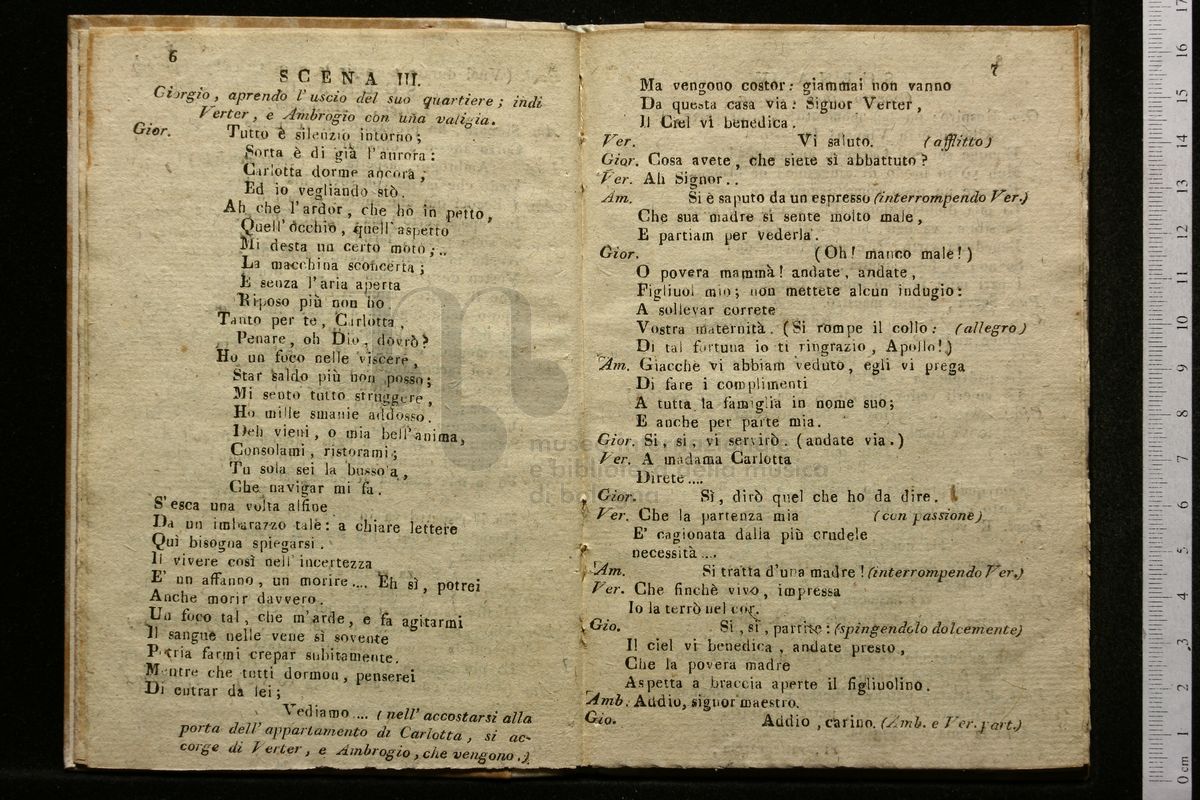 6
SCENA III.
Giorgio, aprendo l'uscio del suo quartiere; indi
Verter, e Ambrogio con una valigia.
Gior. Tutto è silenzio intorno;
Sorta è di già l'aurora:
Carlotta dorme ancora,
Ed io vegliando stò.
Ah che l'ardor, che hò in petto,
Quell'occhio, quell'aspetto
Mi desta un certo moto;..
La macchina sconcerta;
E senza l'aria aperta
Riposo più non ho.
Tanto per te, Carlotta,
Penare, oh Dio, dovrò?
Ho un foco nelle viscere,
Star saldo più non posso;
Mi sento tutto struggere,
Ho mille smanie addosso.
Deh vieni, o mia bell'anima,
Consolami, ristorami;
Tu sola sei la bussola,
Che navigar mi fa.
S'esca una volta alfine
Da un imbarazzo tale: a chiare lettere
Quì bisogna spiegarsi.
Il vivere così nell'incertezza
E' un affanno, un morire.... Eh sì, potrei
Anche morir davvero.
Un foco tal, che m'arde, e fa agitarmi
Il sangue nelle vene sì sovente
Potria farmi crepar subitamente.
Mentre che tutti dormon, penserei
Di entrar da lei;
Vediamo.... (nell'accostarsi alla
porta dell'appartamento di Carlotta, si ac-
corge di Verter, e Ambrogio, che vengono.)
7
Ma vengono costor: giammai non vanno
Da questa casa via: Signor Verter,
Il Ciel vi benedica.
Ver. Vi saluto. (afflitto)
Gior. Cosa avete, che siete sì abbattuto?
Ver. Ah Signor..
Am. Si è saputo da un espresso (interrompendo Ver.)
Che sua madre si sente molto male,
E partiam per vederla.
Gior. (Oh! manco male!)
O povera mammà! andate, andate,
Figliuol mio; non mettete alcun indugio:
A sollevar correte
Vostra maternità. (Si rompe il collo: (allegro)
Di tal fortuna io ti ringrazio, Apollo!)
Am. Giacche vi abbiam veduto, egli vi prega
Di fare i complimenti
A tutta la famiglia in nome suo;
E anche per parte mia.
Gior. Si, si, vi servirò. (andate via.)
Ver. A madama Carlotta
Direte....
Gior. Sì, dirò quel che ho da dire.
Ver. Che la partenza mia (con passione)
E' cagionata dalla più crudele
necessità....
Am. Si tratta d'una madre! (interrompendo Ver.)
Ver. Che finchè vivo, impressa
Io la terrò nel cor.
Gio. Si, sì, partite: (spingendolo dolcemente)
Il ciel vi benedica, andate presto,
Che la povera madre
Aspetta a braccia aperte il figliuolino.
Amb. Addio, signor maestro.
Gio. Addio, carino. (Amb. e Ver. part.)
museo
e biblioteca della musica
di bologna
0 cm 1 2 3 4 5 6 7 8 9 10 11 12 13 14 15 16 17